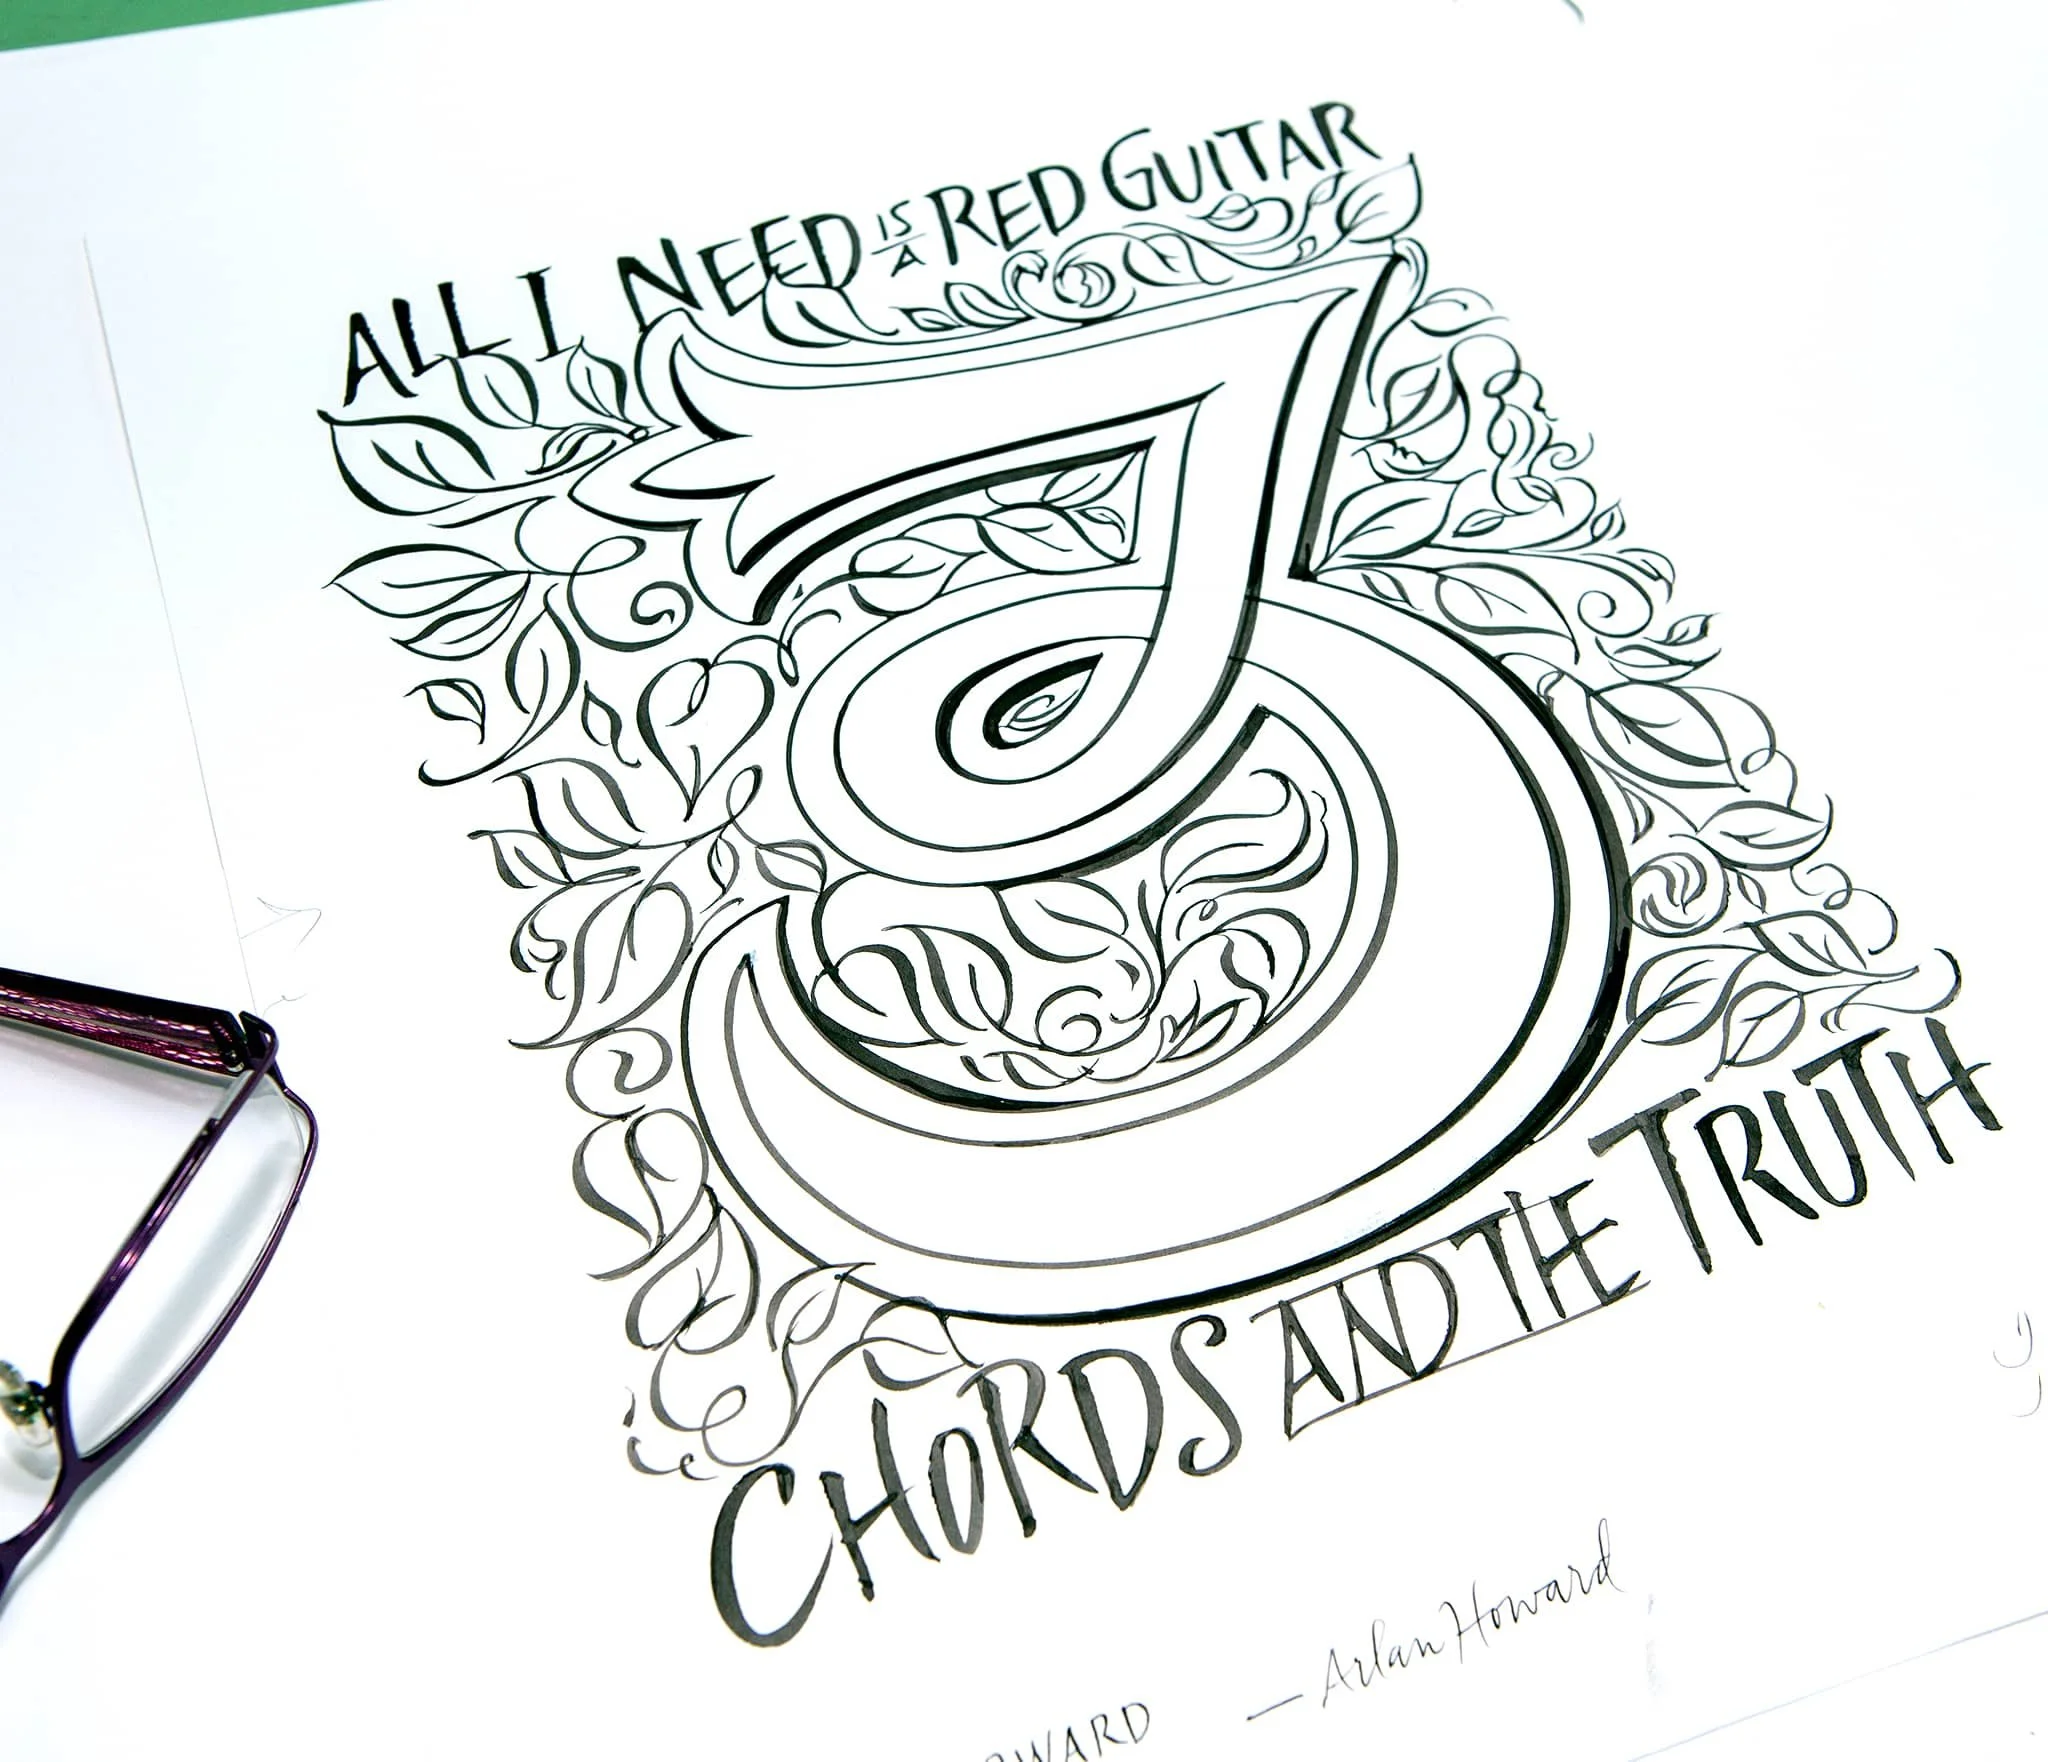 ALL I NEED IS A RED GUITAR
3
CHORDS AND THE TRUTH
— Arlan Howard